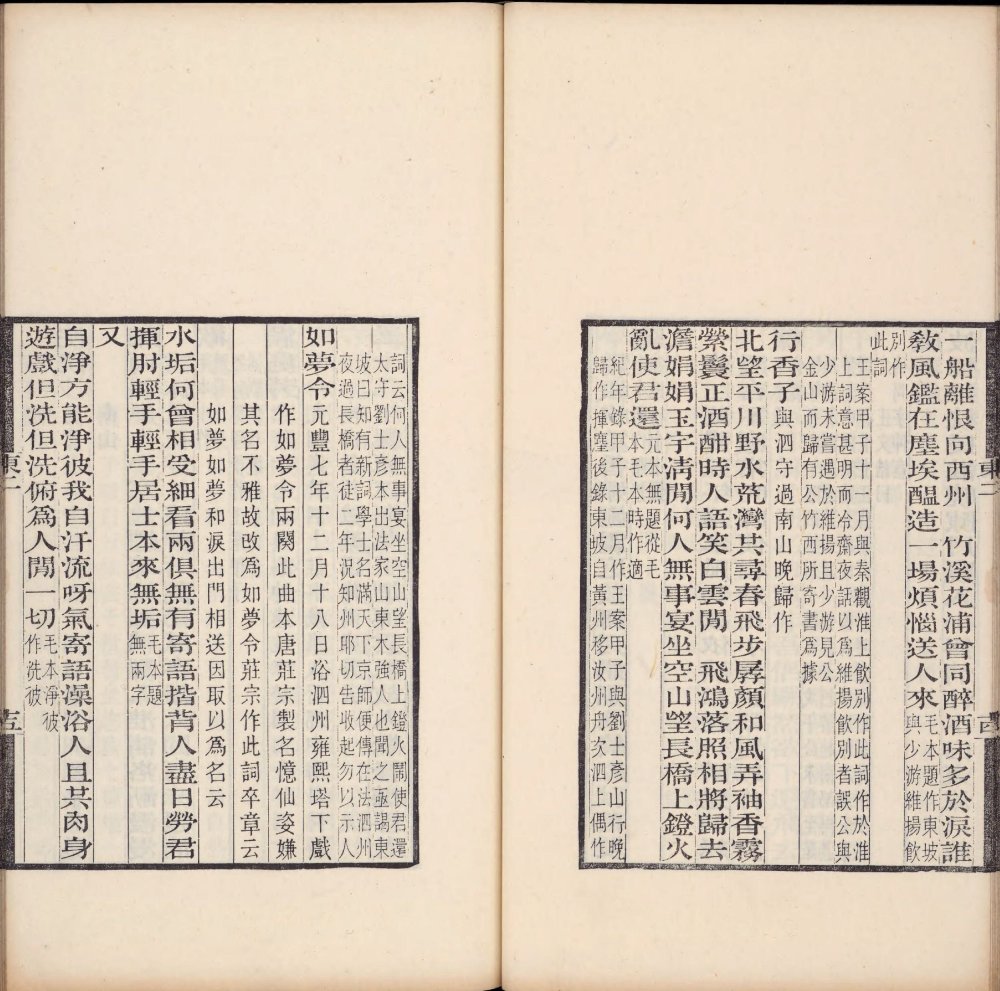 一船離恨向西州　竹溪花浦曾同醉酒味多於淚誰
敎風鑑在塵埃醞造一場煩惱送人來毛本題作東坡
與少游維揚飲
別作
此詞
王案甲子十一月與秦觀淮上飲別作此詞作於淮
上詞意甚明而冷齋夜話以爲維揚飲別者誤公與
少游未嘗遇於維揚且少游見公
金山而歸有公竹西所寄書爲據
行香子與泗守過南山晚歸作
北望平川野水荒灣共尋春飛步孱顏和風弄袖香霧
縈鬟正酒酣時人語笑白雲閒　飛鴻落照相將歸去
澹娟娟玉宇淸閒何人無事宴坐空山望長橋上鐙火
亂使君還元本無題從毛
本毛本時作適
紀年錄甲子十二月作王案甲子與劉士彥山行晚
歸作揮塵後錄東坡自黃州移汝州舟次泗上偶作
東二
古
詞云何人無事宴坐空山望長橋上鐙火鬧使君還
太守劉士彥本出法家山東木強人也聞之亟謁東
坡曰知有新詞學士名滿天下京師便傳在法泗州
夜過長橋者徒二年況知州耶切告收起勿以示人
如夢令元豐七年十二月十八日浴泗州雍熙塔下戲
作如夢令兩闋此曲本唐莊宗製名憶仙姿嫌
其名不雅故改爲如夢令莊宗作此詞卒章云
如夢如夢和淚出門相送因取以爲名云
水垢何曾相受細看兩俱無有寄語揩背人盡日勞君
揮肘輕手輕手居士本來無垢毛本題
無兩字
又
自淨方能淨彼我自汗流呀氣寄語澡浴人且共肉身
遊戲但洗但洗俯爲人閒一切毛本淨彼
作洗彼
東二